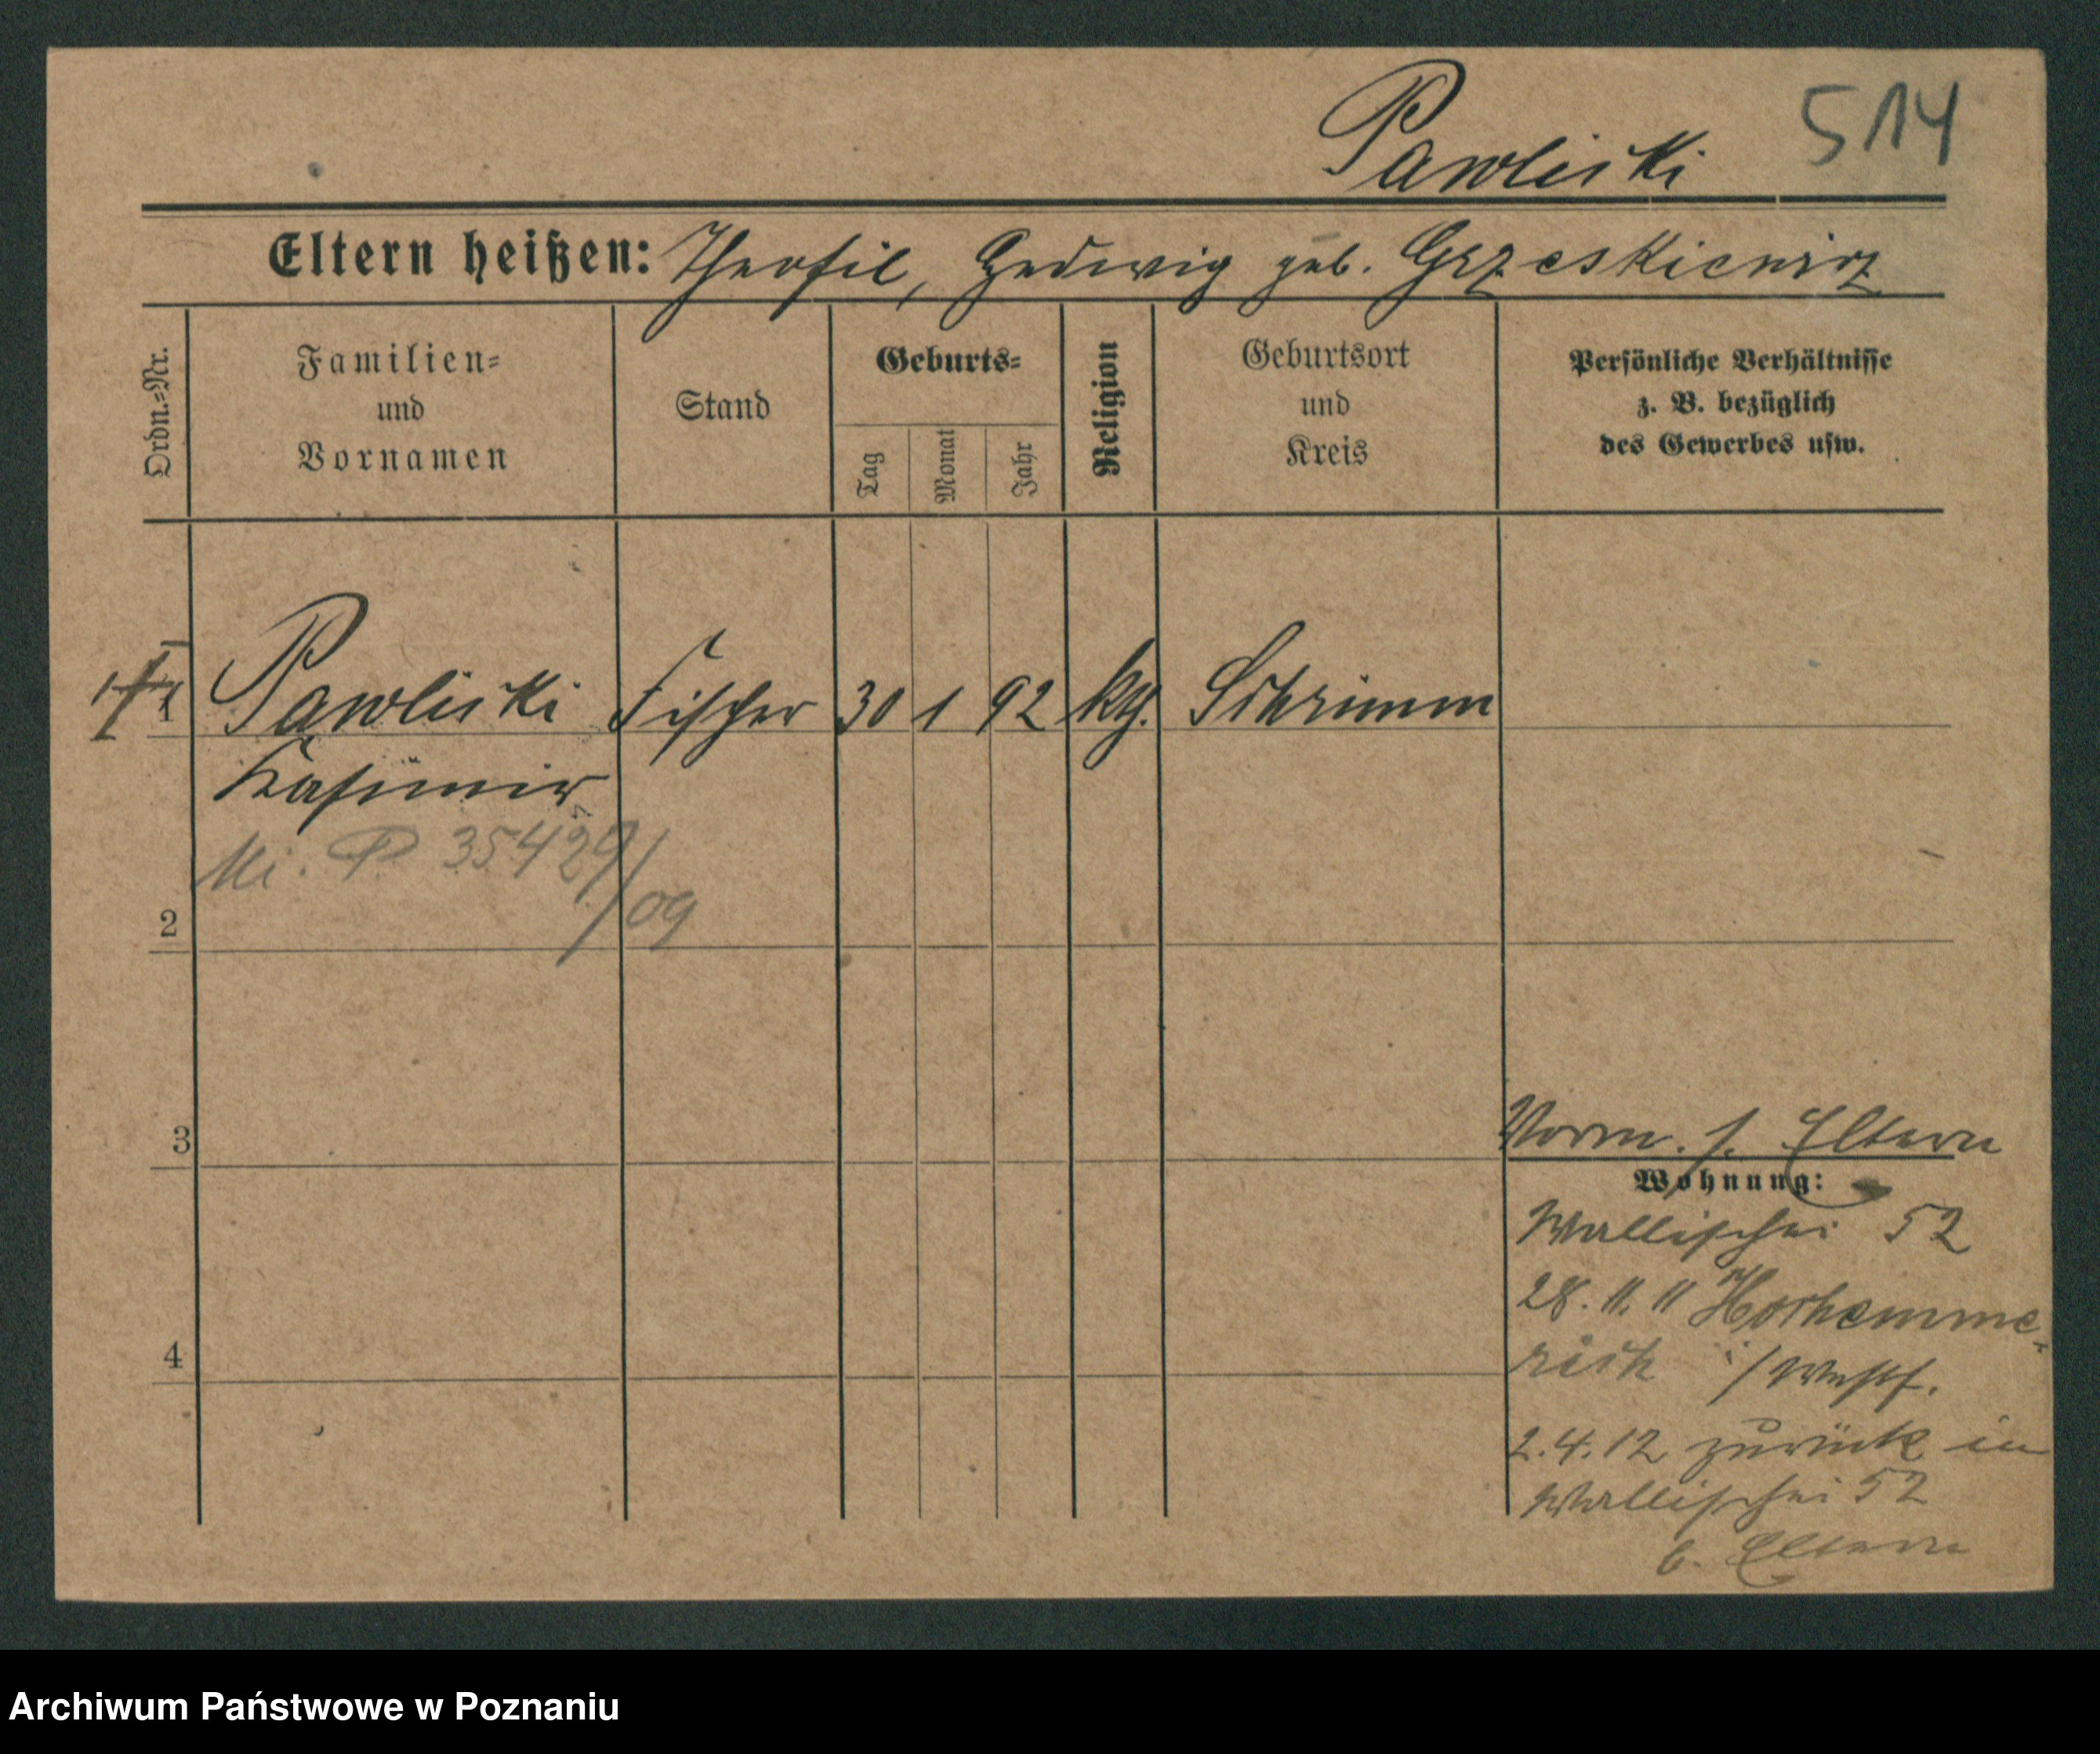 Pawlicki 514
Eltern heißen: Theofil, Hedwig geb. Grzeskiewicz
Ordn.=Nr.
Familien=
und
Vornamen
Stand
Geburts=
Tag
Monat
Jahr
Religion
Geburtsort
und
Kreis
Persönliche Verhältnisse
z. B. bezüglich
des Gewerbes usw.
1 Pawlicki Fischer 30 1 92 kth. Schrimm
Kasimir
Mi. P 35429/09
2
3
Vorm. s. Eltern
Wohnung:
Wallischei 52
28. 11. 11
4
i/Westf.
2.4.12 zurück in
Wallischei 52
b. Eltern
Archiwum Państwowe w Poznaniu